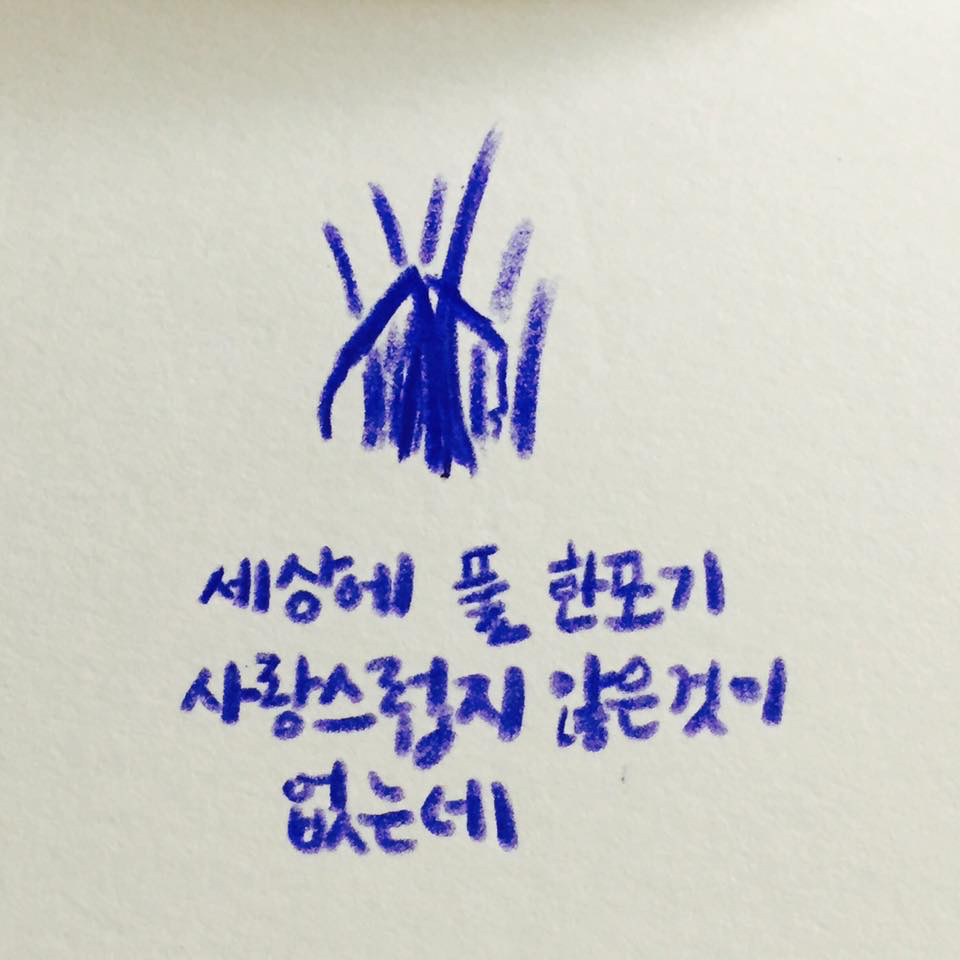 세상에 풀 한포기
사랑스럽지 않은것이
없는데